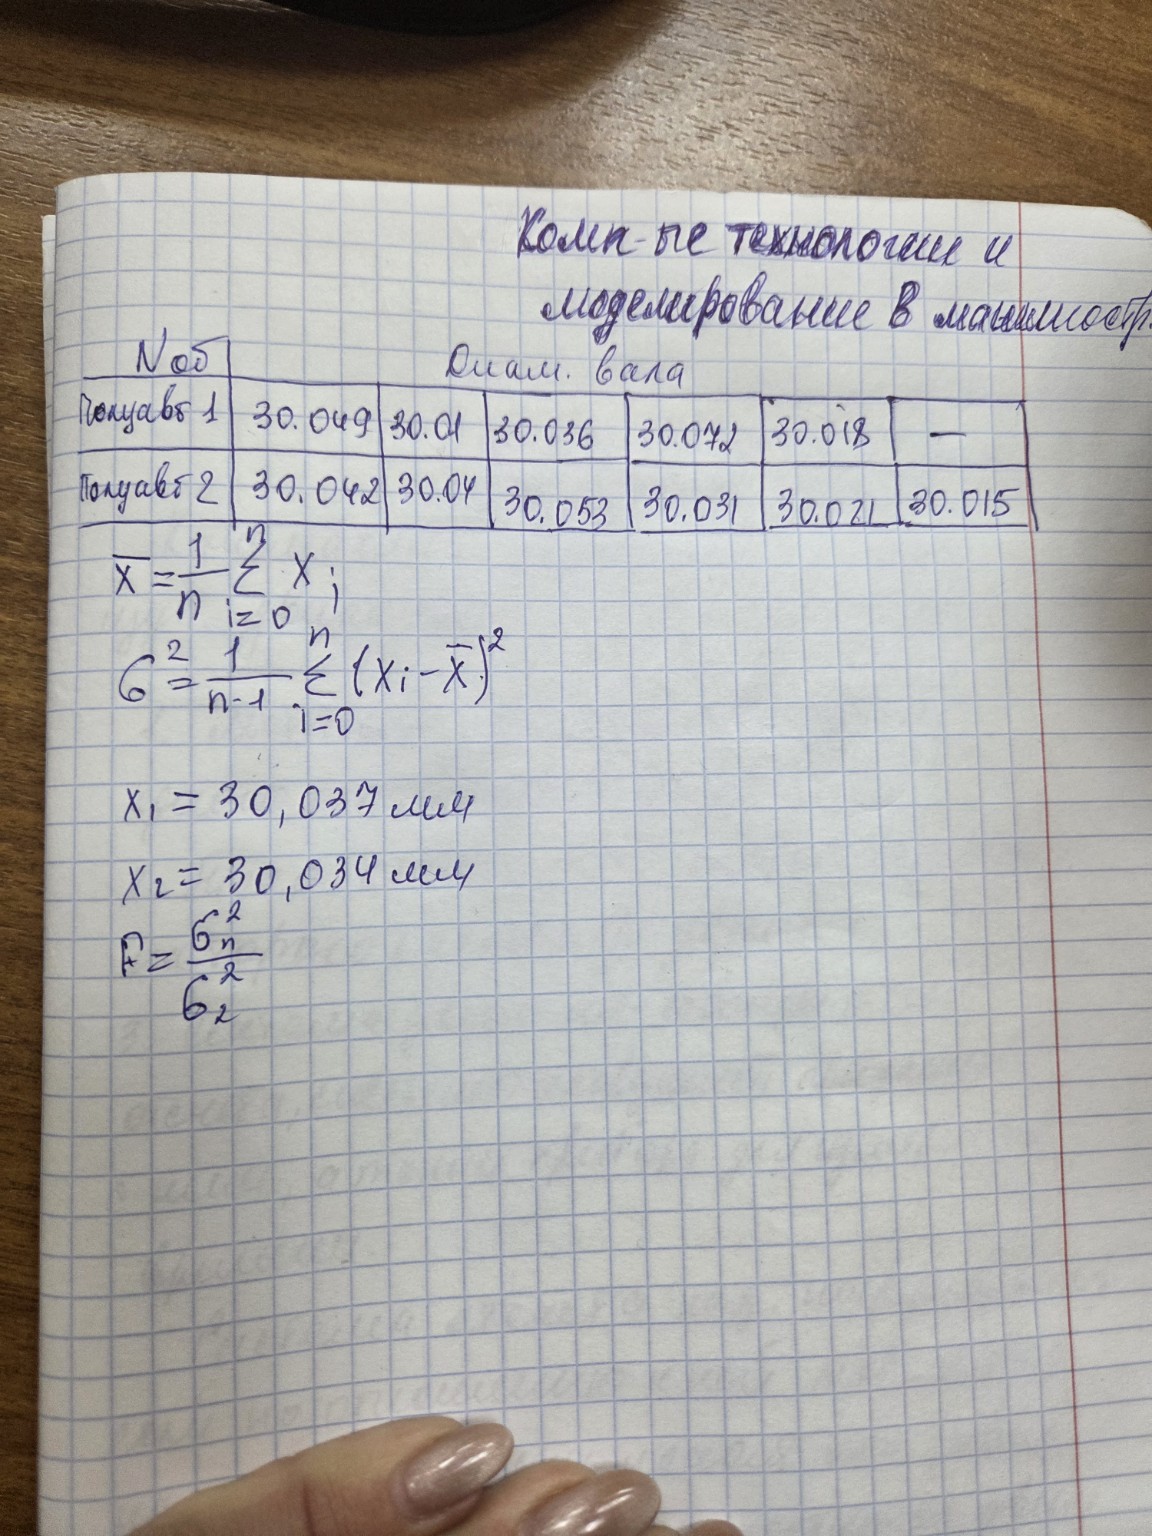 Комп-ые технологии и
моделирование в машиностр.
N об Диам. вала
Полуавт 1 30.049 30.01 30.036 30.072 30.018 —
Полуавт 2 30.042 30.04 30.053 30.031 30.021 30.015
x̄ = 1/n Σ n i=0 x i
б² = 1/n-1 Σ n i=0 (xi - x̄)²
x₁ = 30,037 мм
x₂ = 30,034 мм
F = бn²/б₂²